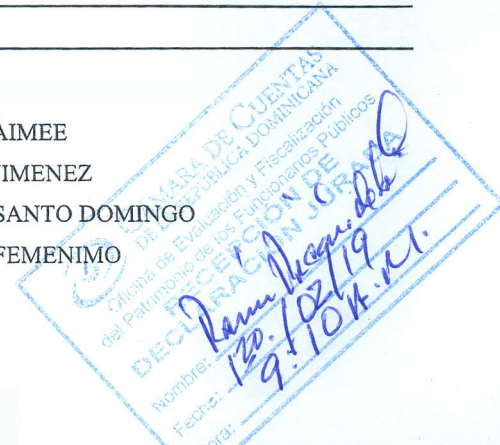 AIMEE
JIMENEZ
SANTO DOMINGO
FEMENIMO
CÁMARA DE CUENTAS
DE LA REPÚBLICA DOMINICANA
Oficina de Evaluación y Fiscalización
del Patrimonio de los Funcionarios Públicos
RECEPCIÓN DE
DECLARACIÓN JURADA
Nombre:
Fecha: /02/19
ora: 9:10 A.M.